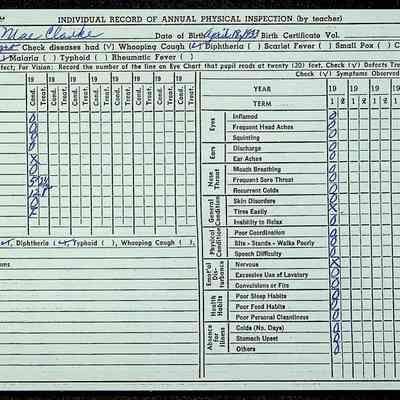 INDIVIDUAL RECORD OF ANNUAL PHYSICAL INSPECTION (by teacher)
Mae Clarke Date of Birth April 18, 1953 Birth Certificate Vol.
Check diseases had (√) Whooping Cough (√) Diphtheria ( ) Scarlet Fever ( ) Small Pox ( ) C
Malaria ( ) Typhoid ( ) Rheumatic Fever ( )
fect; For Vision: Record the number of the line on Eye Chart that pupil reads at twenty (20) feet. Check (√) Defects Tre
Check (√) Symptoms Observed
19 19 19 19 19 19 19
Cond. Treat. Cond. Treat. Cond. Treat. Cond. Treat. Cond. Treat. Cond. Treat. Cond. Treat.
YEAR 19 19 19 19
TERM 1 2 1 2 1 2 1
Eyes
Inflamed 0
Frequent Head Aches 0
Squinting 0
Ears
Discharge 0
Ear Aches 0
Nose Throat
Mouth Breathing 0
Frequent Sore Throat 0
Recurrent Colds 0
General Condition
Skin Disorders 0
Tires Easily 0
Inability to Relax 0
Physical Condition
Poor Coordination 0
Sits - Stands - Walks Poorly 0
Speech Difficulty 0
Emot'ful Dis-turbance
Nervous X
Excessive Use of Lavatory 0
Convulsions or Fits 0
Health Habits
Poor Sleep Habits 0
Poor Food Habits 0
Poor Personal Cleanliness 0
Absence for Illness
Colds (No. Days) 0
Stomach Upset 0
Others 0
Diphtheria (√), Typhoid ( ), Whooping Cough ( ),
ms